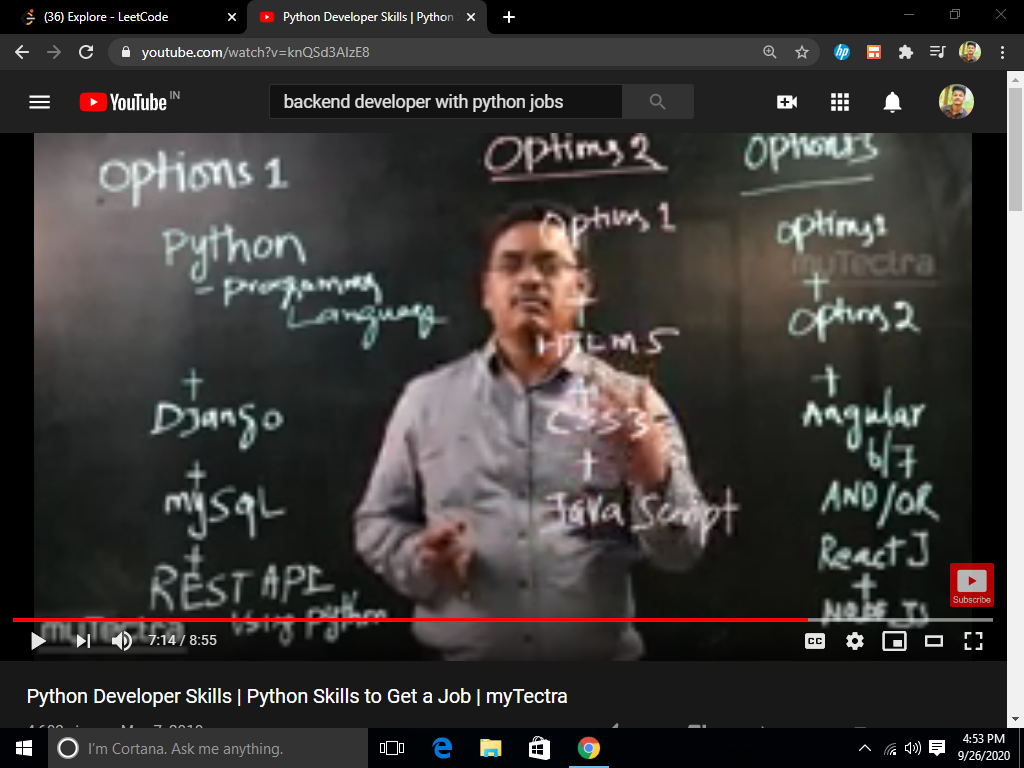 (36) Explore - LeetCode
Python Developer Skills | Python
youtube.com/watch?v=knQSd3AIzE8
YouTube IN
backend developer with python jobs
Options 1
Python
- programming
Language
+
Django
+
mySQL
+
REST API
Using python
Options 2
Options 1
+
HTLM5
+
CSS3
+
Java Script
Options 3
Options 1
+
Options 2
+
Angular
6/7
AND/OR
React J
+
Node JS
myTectra
myTectra
Subscribe
7:14 / 8:55
CC
Python Developer Skills | Python Skills to Get a Job | myTectra
I'm Cortana. Ask me anything.
4:53 PM
9/26/2020